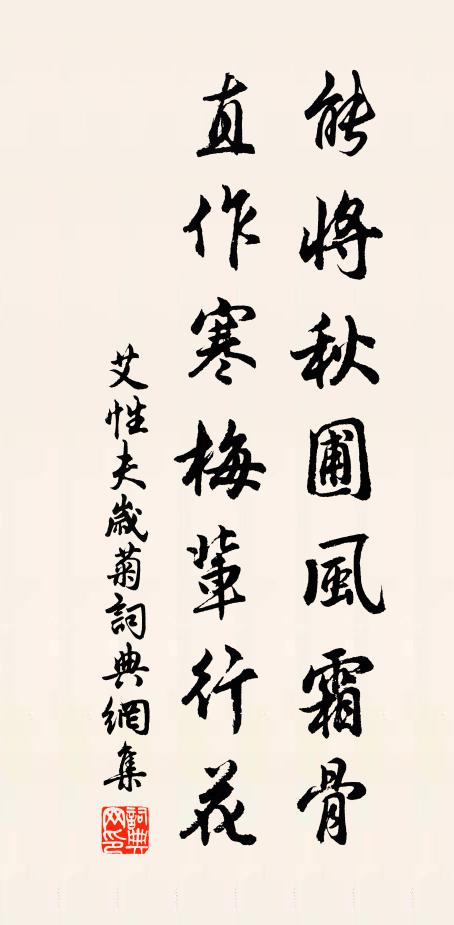 能將秋圃風霜骨
直作寒梅輩行花
艾性夫歲菊詞典網集
詞典網印